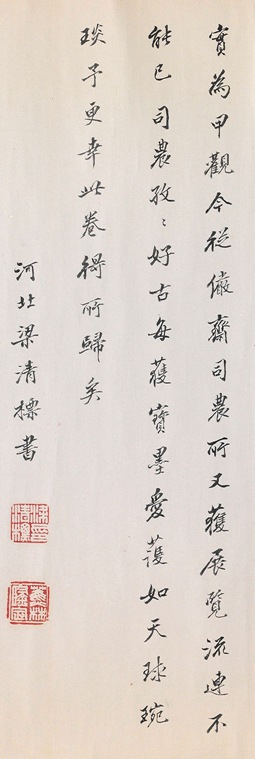 實為甲觀今從儼齋司農所又獲展覽流連不
能已司農孜〻好古每獲寶墨愛護如天球琬
琰予更幸此卷得所歸矣
河北梁清標書